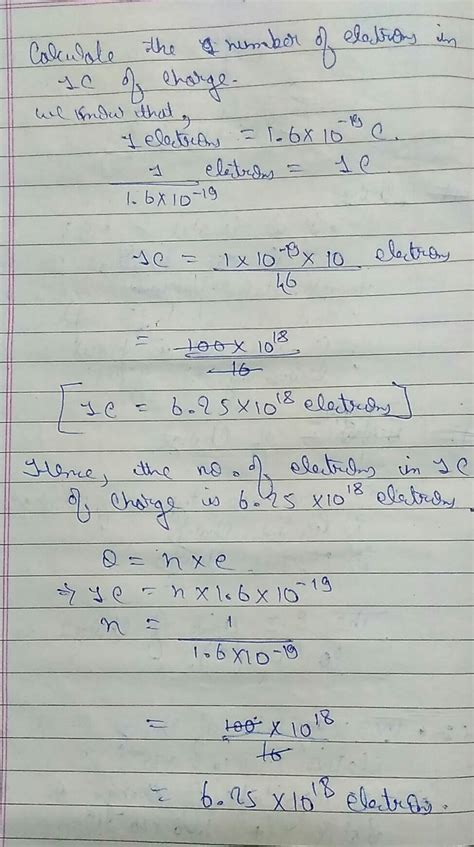 Calculate the number of electrons in
1C of charge.
we know that,
1 electrons = 1.6×10⁻¹⁹ C.
1 / 1.6×10⁻¹⁹ eletrons = 1C
1C = 1×10⁻¹⁹×10 / 16 electrons
= 100×10¹⁸ / 16
[1C = 6.25×10¹⁸ electrons]
Hence, the no. of electrons in 1C
of charge is 6.25 ×10¹⁸ eletrons.
Q = n×e
⇒ 1C = n×1.6×10⁻¹⁹
n = 1 / 1.6×10⁻¹⁹
= 100×10¹⁸ / 16
= 6.25×10¹⁸ electrons.